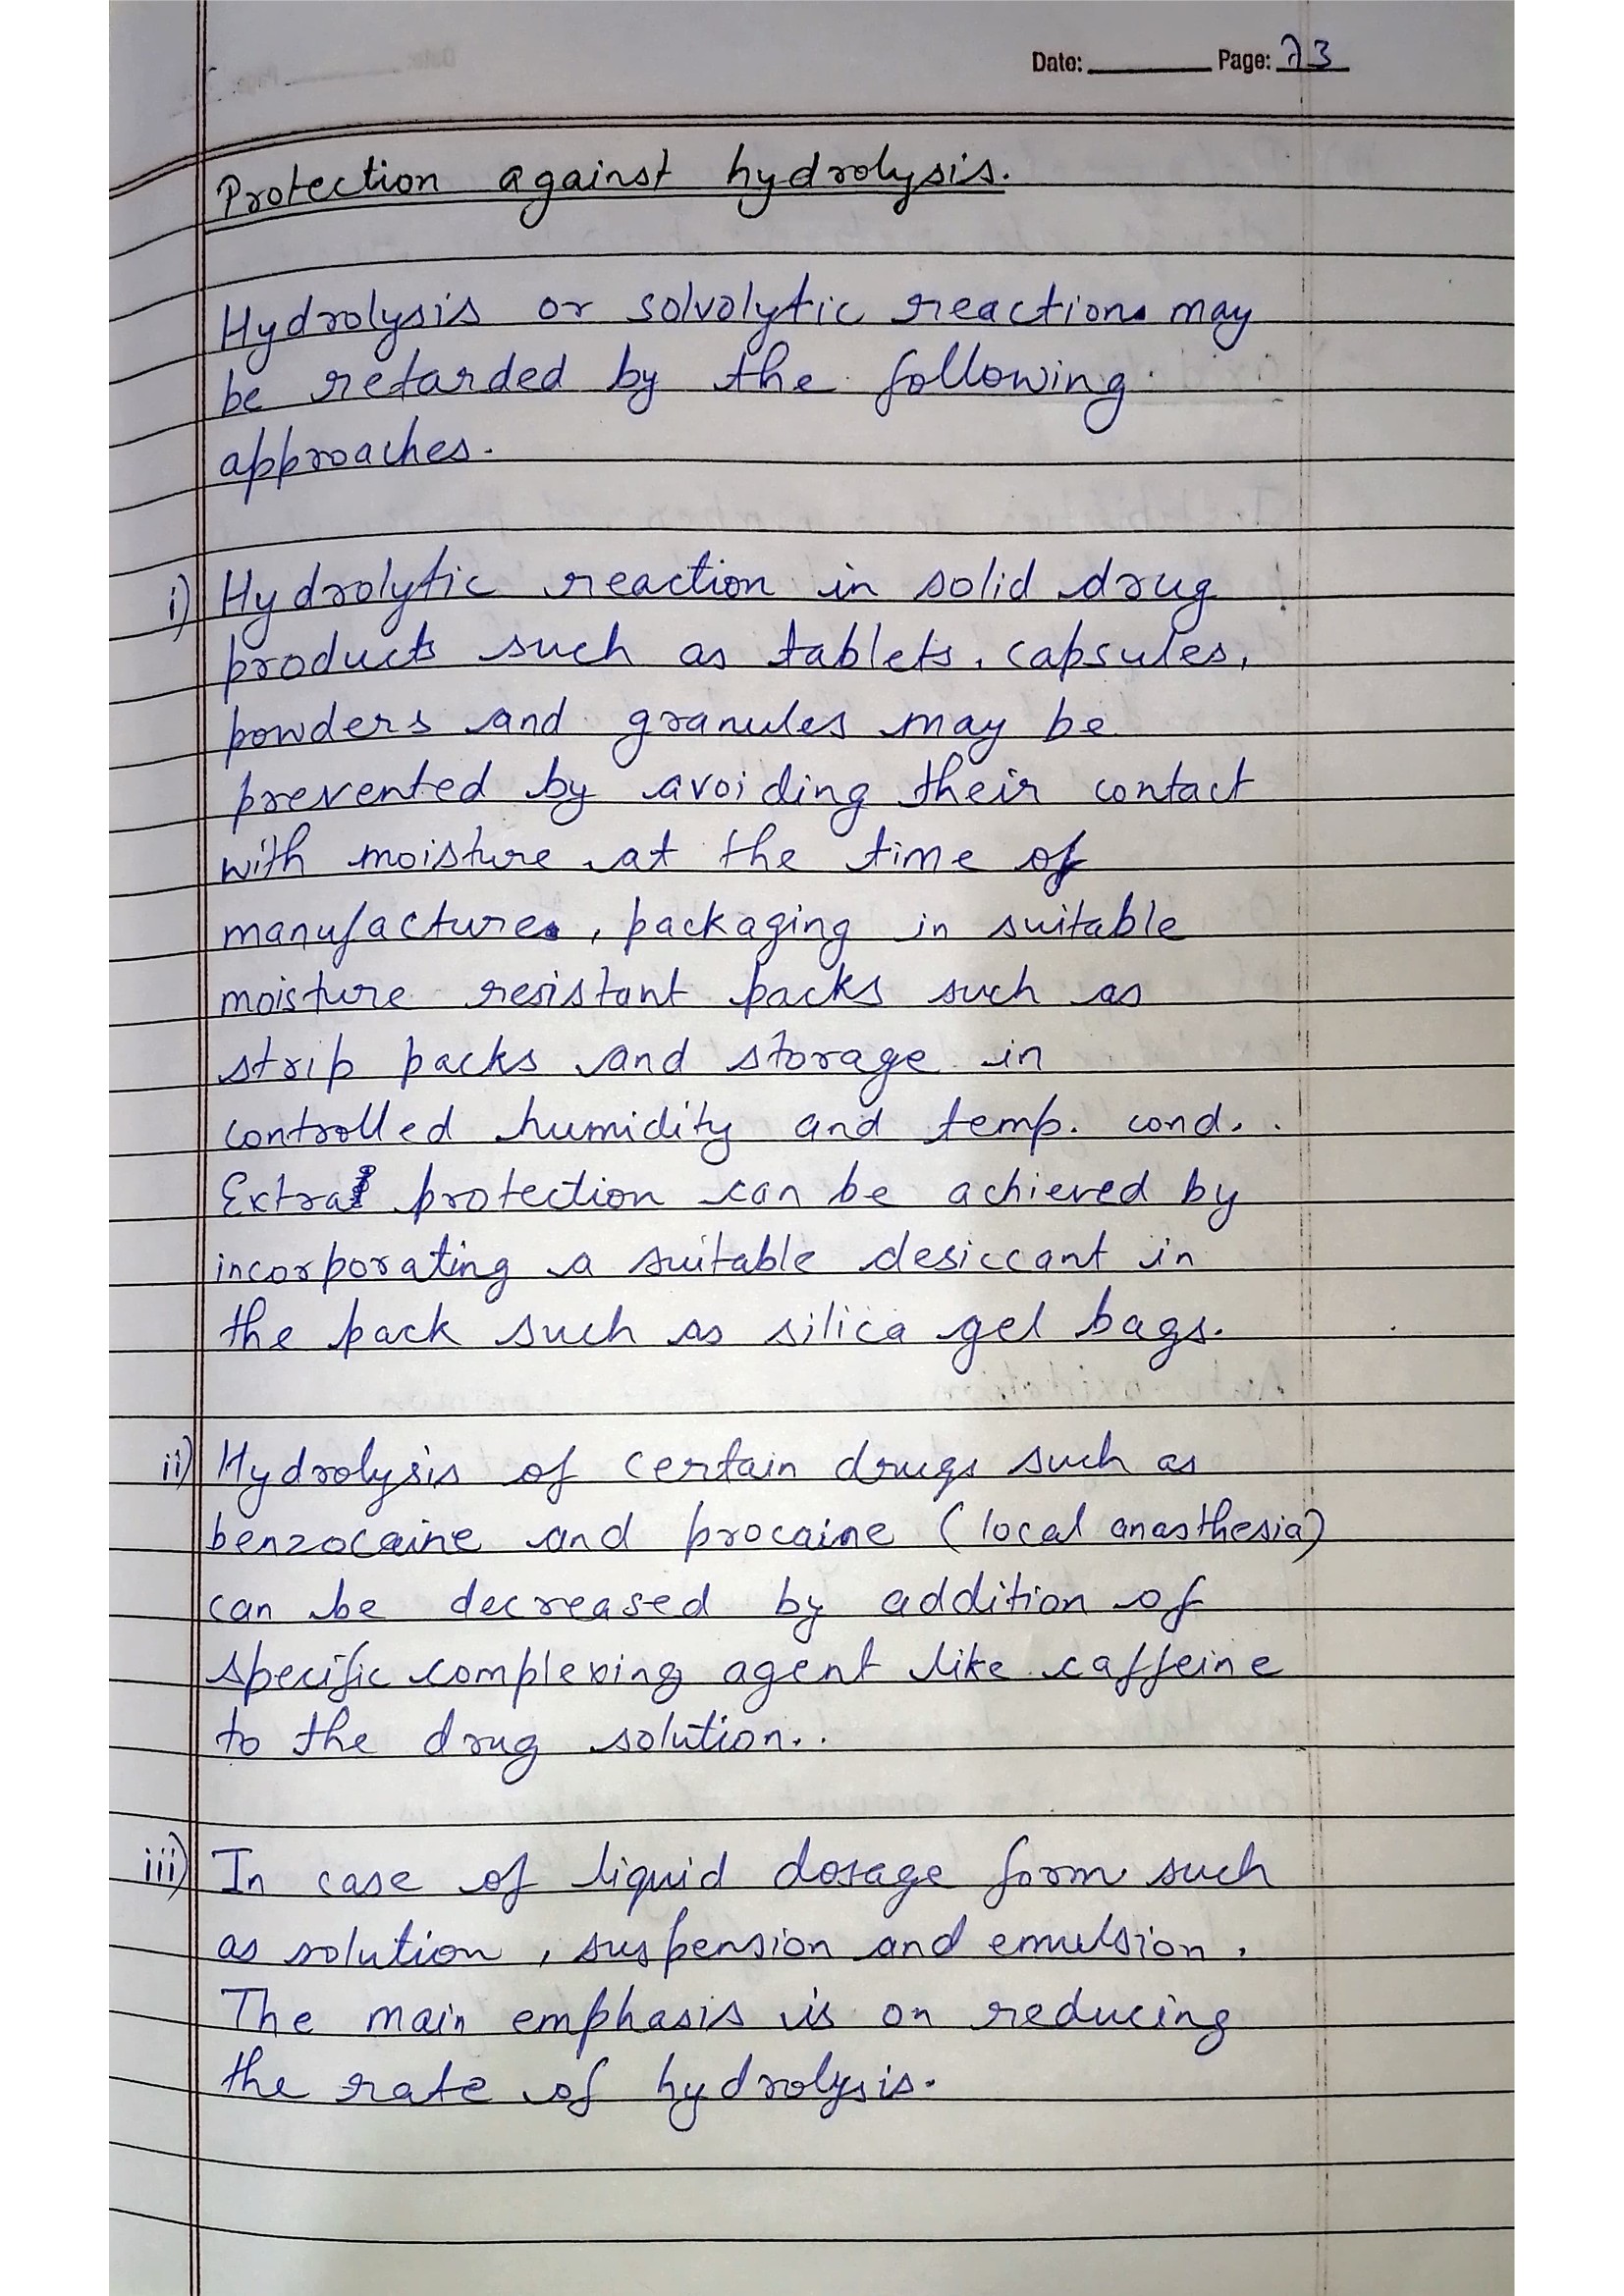 Date: ________ Page: 73
Protection against hydrolysis.
Hydrolysis or solvolytic reaction may
be retarded by the following
approaches.
i) Hydrolytic reaction in solid drug
products such as tablets, capsules,
powders and granules may be
prevented by avoiding their contact
with moisture at the time of
manufacture, packaging in suitable
moisture resistant packs such as
strip packs and storage in
controlled humidity and temp. cond..
Extra protection can be achieved by
incorporating a suitable desiccant in
the pack such as silica gel bags.
ii) Hydrolysis of certain drugs such as
benzocaine and procaine (local anasthesia)
can be decreased by addition of
specific complexing agent like caffeine
to the drug solution..
iii) In case of liquid dosage form such
as solution, suspension and emulsion.
The main emphasis is on reducing
the rate of hydrolysis.